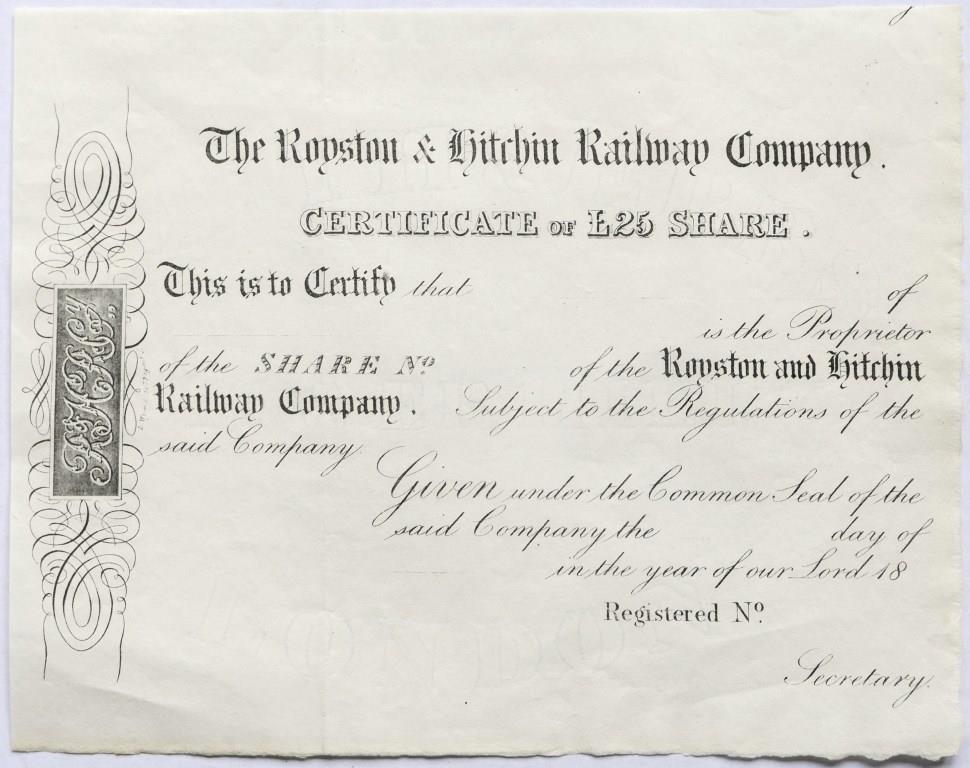 The Royston & Hitchin Railway Company.
CERTIFICATE OF £25 SHARE.
This is to Certify that of
is the Proprietor
of the SHARE No of the Royston and Hitchin
Railway Company. Subject to the Regulations of the
said Company
Given under the Common Seal of the
said Company the day of
in the year of our Lord 18
Registered No.
Secretary.